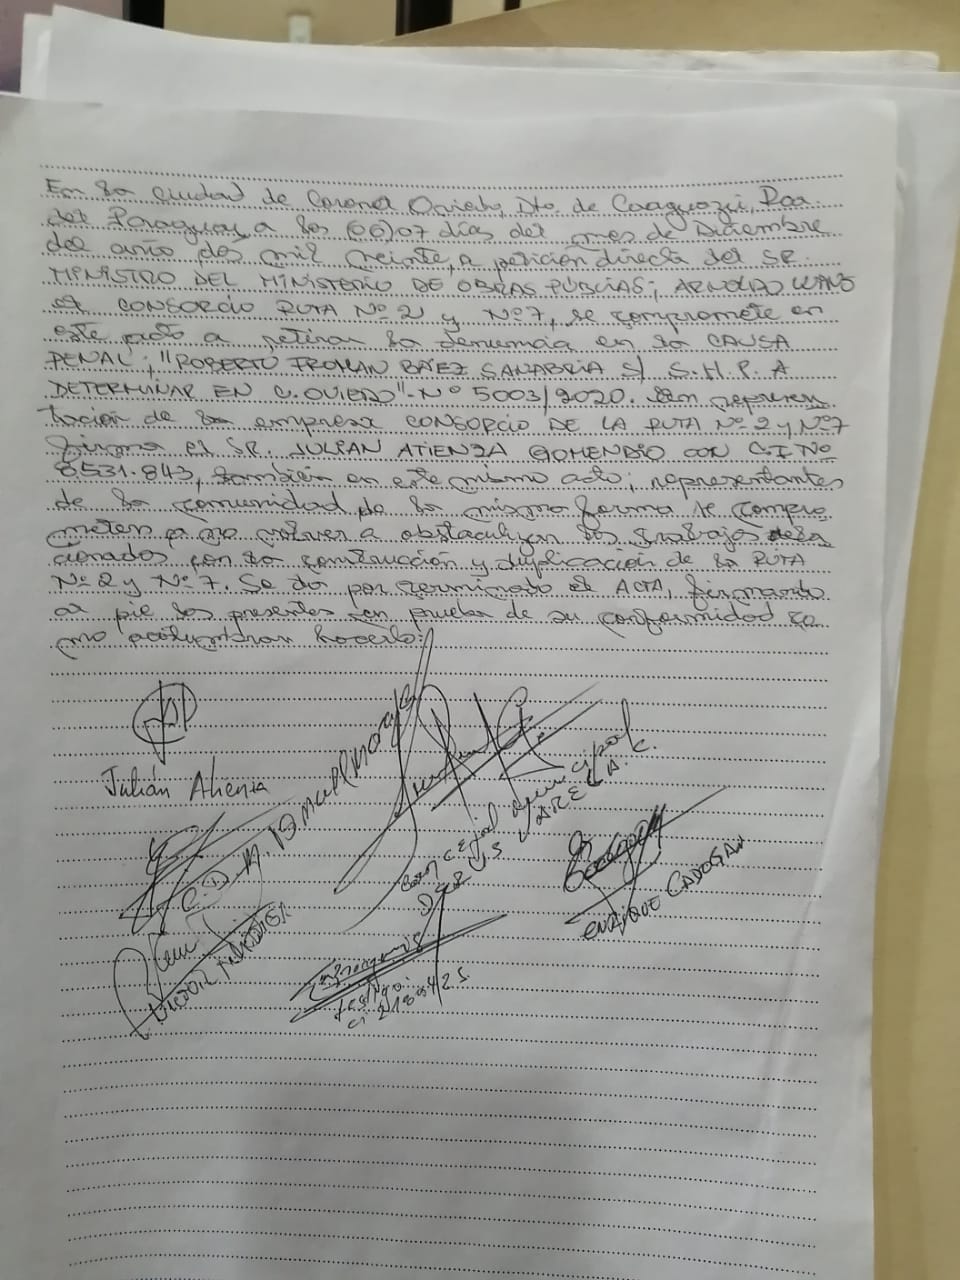 En la ciudad de Coronel Oviedo, Dto. de Caaguazú, Rca.
del Paraguay, a los (06) 07 días del mes de Diciembre
del año dos mil veinte, a petición directa del SR.
MINISTRO DEL MINISTERIO DE OBRAS PÚBLICAS; ARNOLDO WIENS
el CONSORCIO RUTA Nº 2 y Nº 7, se compromete en
este acto a retirar la denuncia en la CAUSA
PENAL; "ROBERTO FROMAN BÁEZ SANABRIA S/ S.H.P. A
DETERMINAR EN C. OVIEDO"- Nº 5003/2020. En represen
tación de la empresa CONSORCIO DE LA RUTA Nº 2 y Nº 7
firma el SR. JULIAN ATIENZA GOMENDIO CON C.I. Nº
8.531.843, también en este mismo acto, representantes
de la comunidad, de la misma forma se compro
meten a no volver a obstaculizar los trabajos rela
cionados con la construcción y duplicación de la RUTA
Nº 2 y Nº 7. Se da por terminado el ACTA, firmando
al pie los presentes en prueba de su conformidad co
mo acostumbran hacerlo.
Julián Atienza
Concejal Municipal
ENRIQUE CADOGAN
Testigo